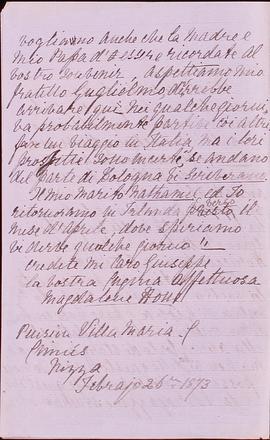 vogliono anche che la Madre e
mio Papa d'essere ricordate al
vostro Souvenir, aspettiamo mio
fratello Guglielmo, dovrebbe
arrivare qui nei qualche giorni,
va probabilmente partire coi altri
fare un viaggio in Italia, ma i lori
progetti sono incerti, se andano
da Parte di Bologna vi
Il mio Marito Nathaniel ed Io
ritorniamo in Irlanda verso il
mese d'Aprile, dove speriamo
vedervi qualche giorno!!
credete mi Caro Giuseppe
la vostra Cugina affettuosa
Magdalene Hone
Pension Villa Maria
Cimiés
Nizza
Febrajo 26 1873